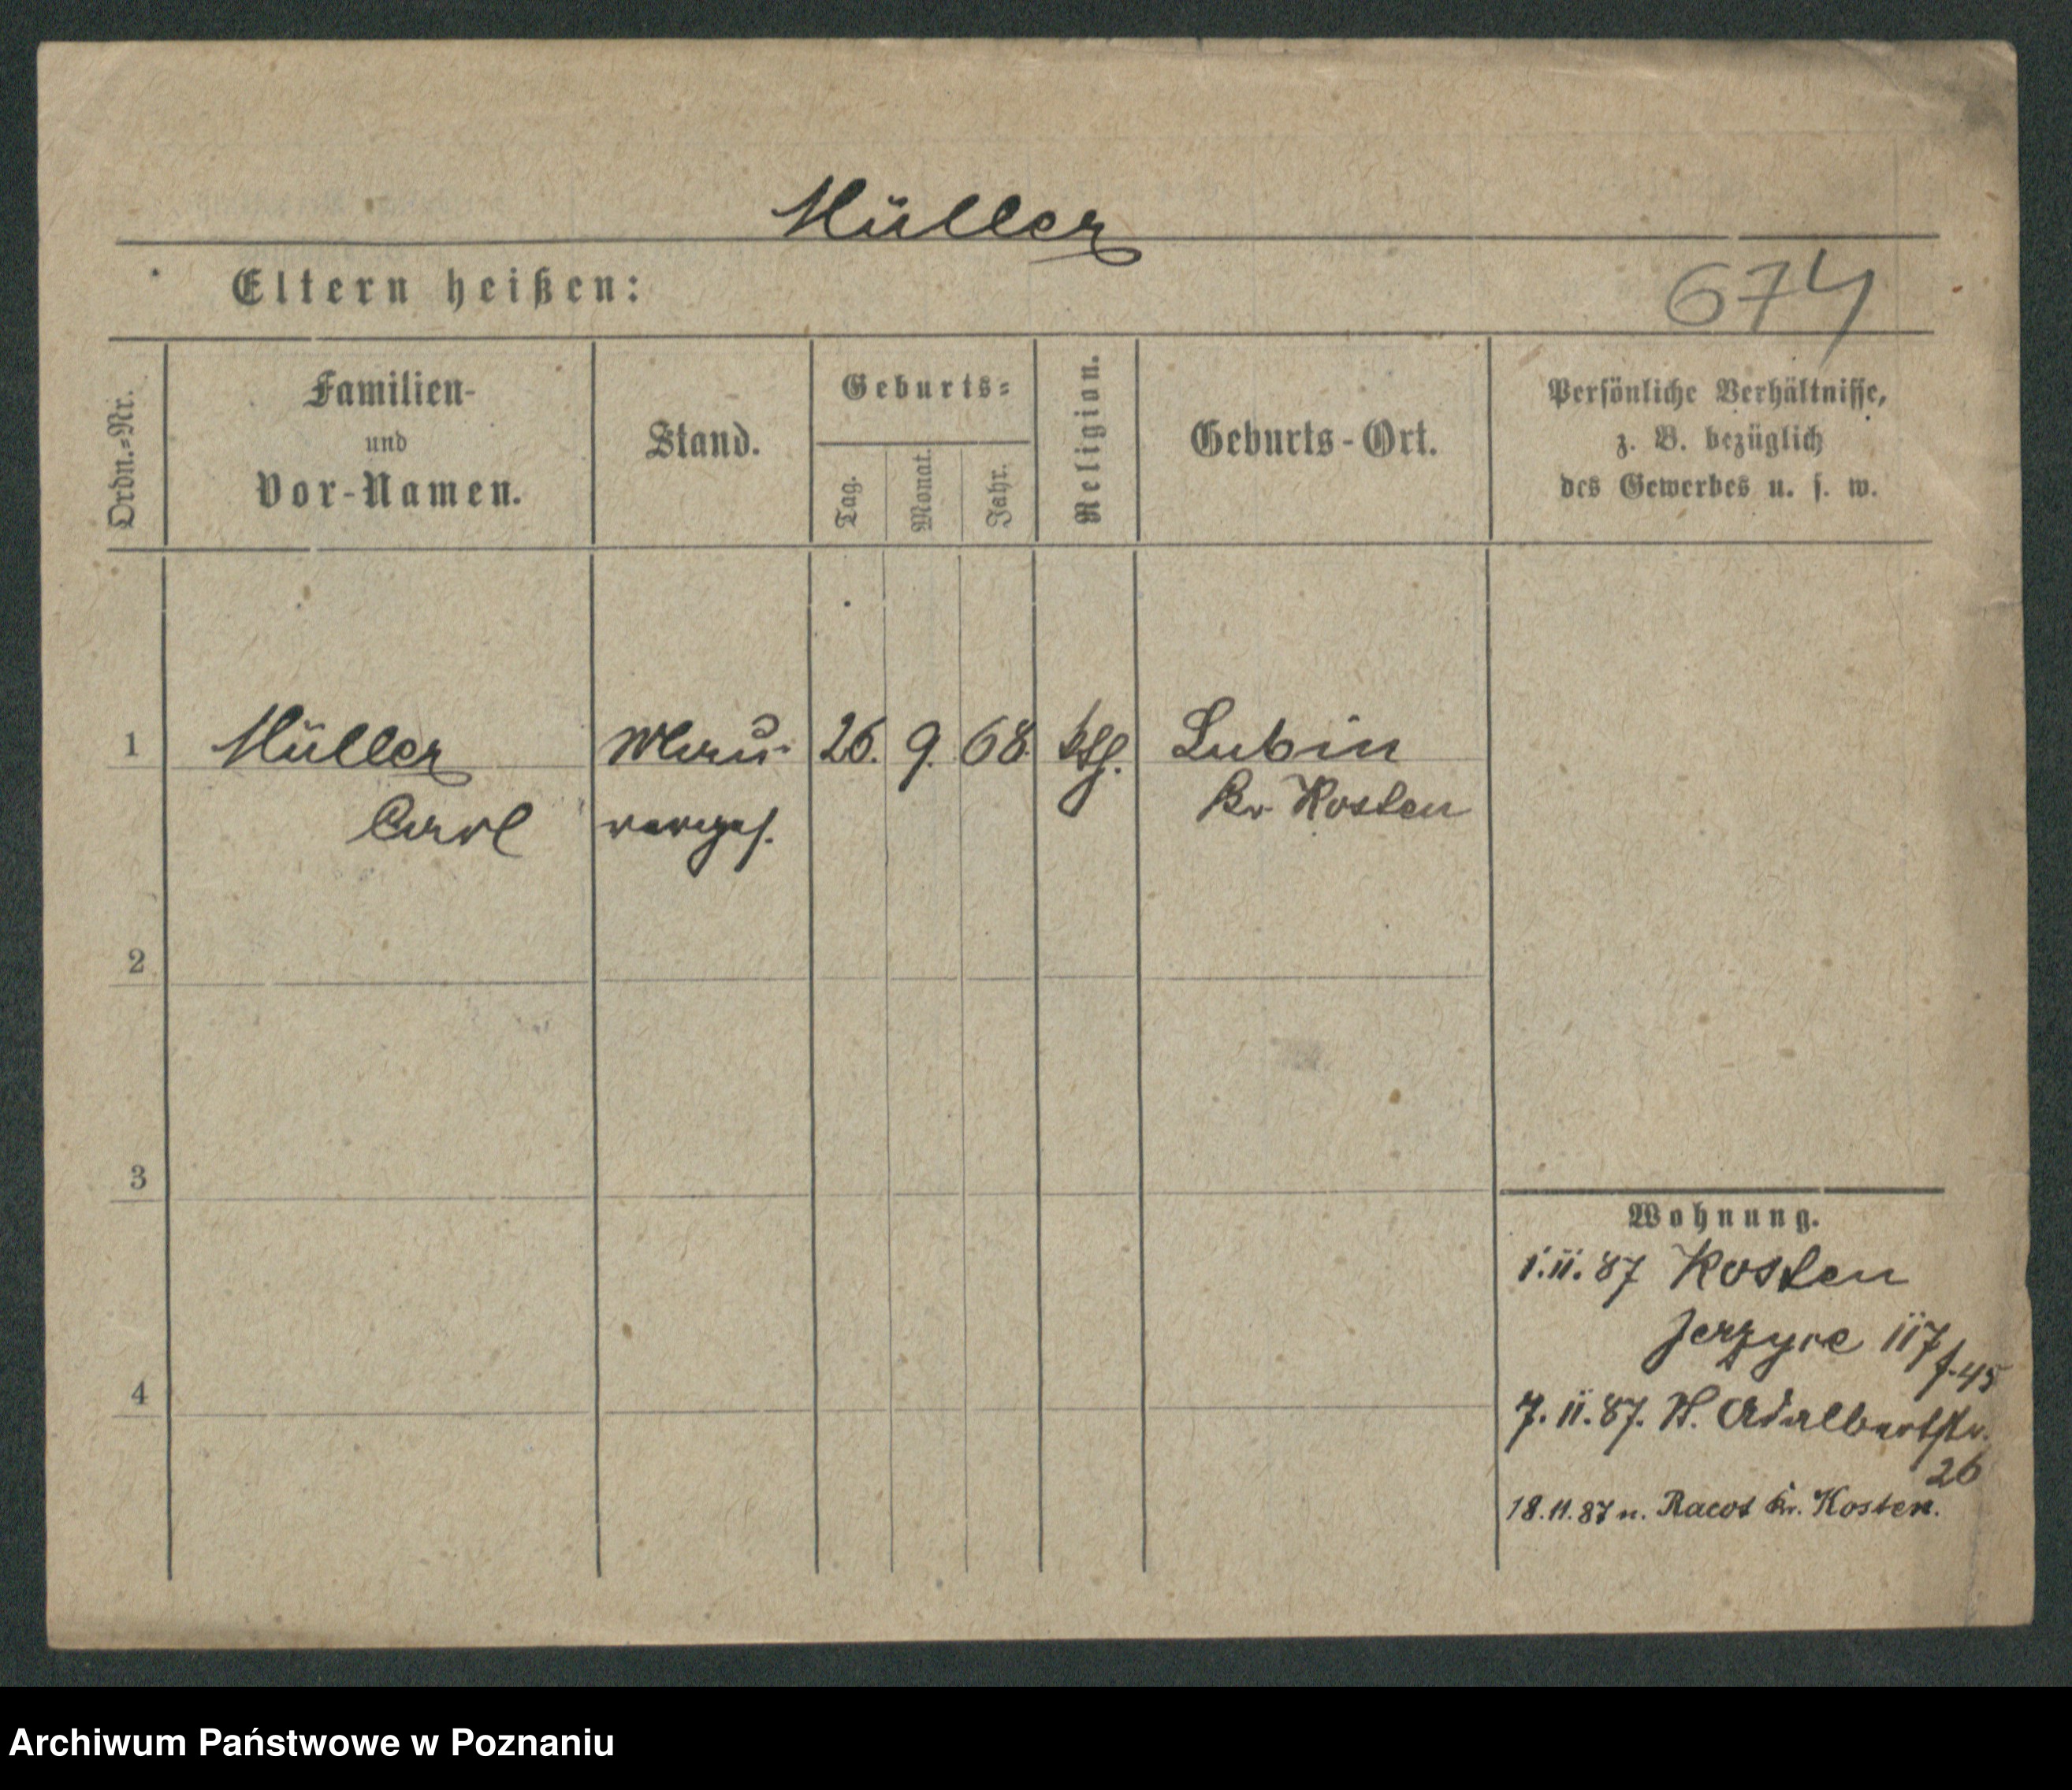 Müller
Eltern heißen:
674
Ordn.=Nr.
Familien-
und
Vor-Namen.
Stand.
Geburts=
Tag.
Monat.
Jahr.
Religion.
Geburts-Ort.
Persönliche Verhältnisse,
z. B. bezüglich
des Gewerbes u. s. w.
1
Müller
Carl
Mau-
rerges.
26. 9. 68.
ktg.
Lubin
Kr Kosten
2
3
4
Wohnung.
1.11.87 Kosten
Jerzyce 117
7.11.87. St. Adalbertstr.
26
18.11.87 n. Racot Kr. Kosten.
Archiwum Państwowe w Poznaniu